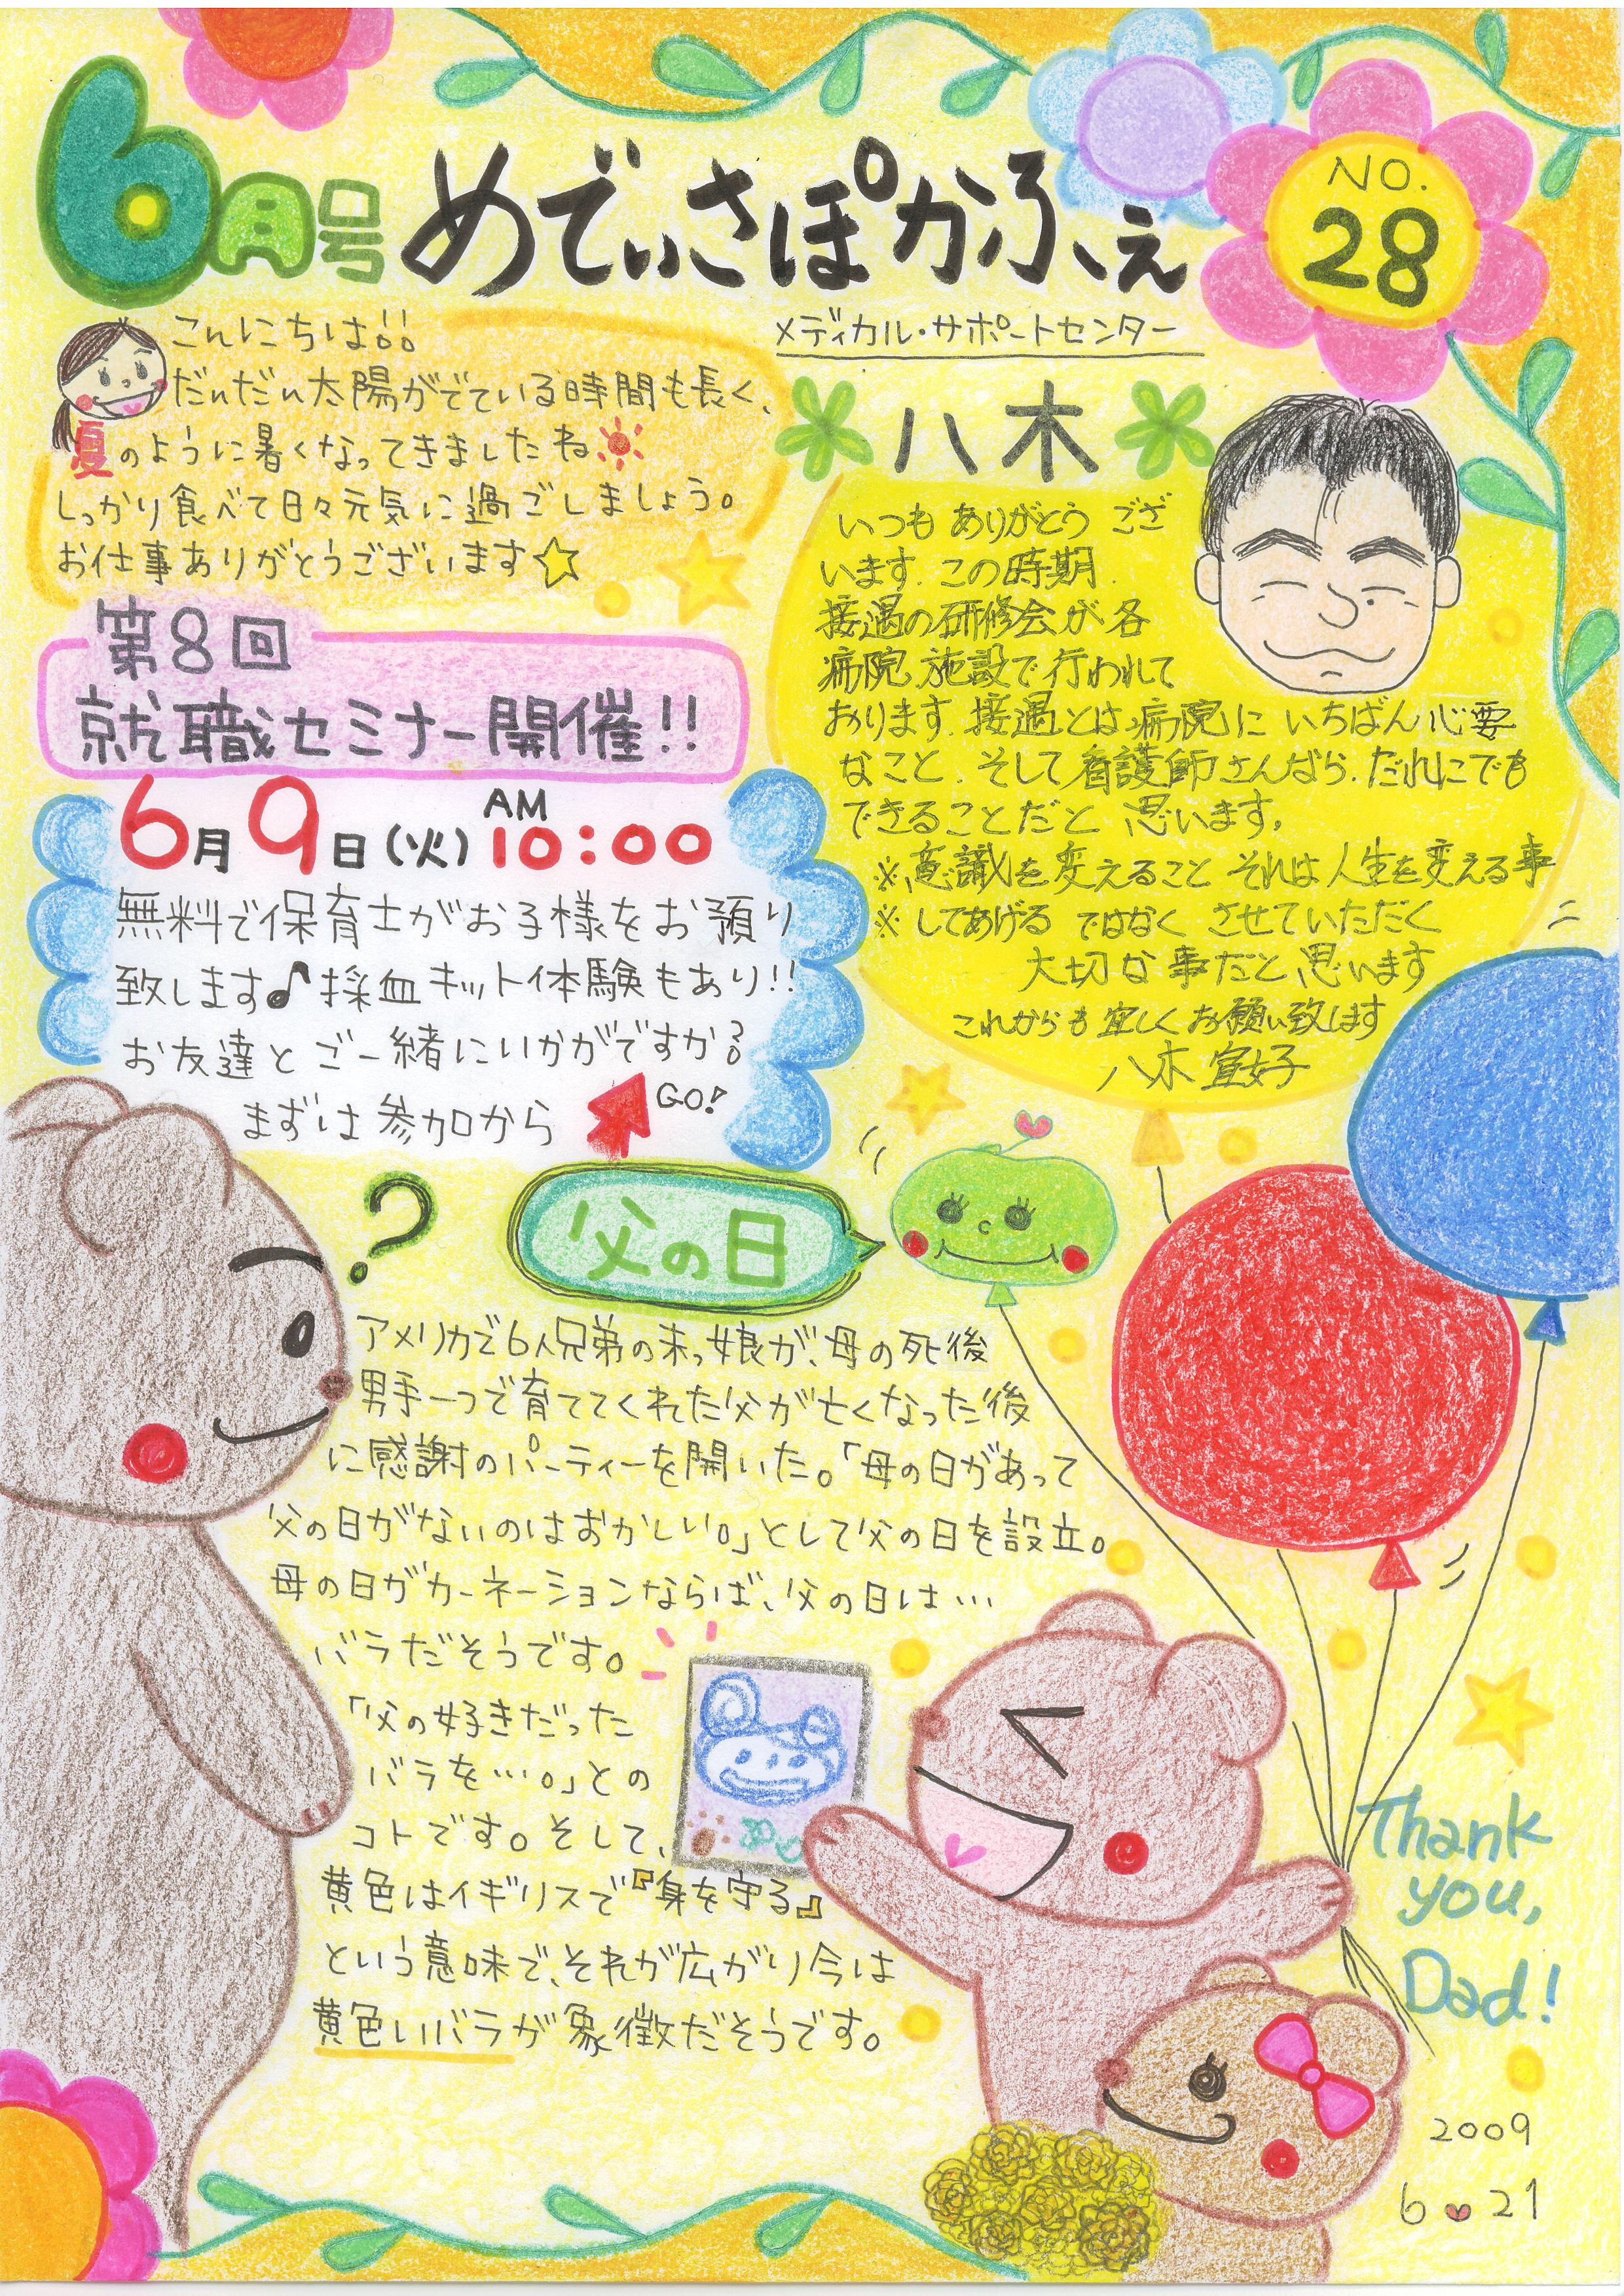 6月号
めでぃさぽかふぇ
NO.
28
メディカル・サポートセンター
こんにちは!!
だんだん太陽がでている時間も長く、
夏のように暑くなってきましたね
しっかり食べて日々元気に過ごしましょう。
お仕事ありがとうございます☆
第8回
就職セミナー開催!!
6月9日(火) AM 10:00
無料で保育士がお子様をお預り
致します♪採血キット体験もあり!!
お友達とご一緒にいかがですか?
まずは参加から
GO!
八木
いつもありがとうござ
います.この時期.
接遇の研修会が各
病院施設で行われて
おります.接遇とは病院にいちばん必要
なこと.そして看護師さんなら.だれにでも
できることだと思います,
※意識を変えることそれは人生を変える事
※してあげるではなくさせていただく
大切な事だと思います
これからも宜しくお願い致します
八木宜好子
?
父の日
アメリカで6人兄弟の末っ娘が、母の死後
男手一つで育ててくれた父が亡くなった後
に感謝のパーティーを開いた。「母の日があって
父の日がないのはおかしい。」として父の日を設立。
母の日がカーネーションならば、父の日は…
バラだそうです。
「父の好きだった
バラを…。」との
コトです。そして、
黄色はイギリスで『身を守る』
という意味で、それが広がり今は
黄色いバラが象徴だそうです。
Thank
you,
Dad!
2009
6♥21